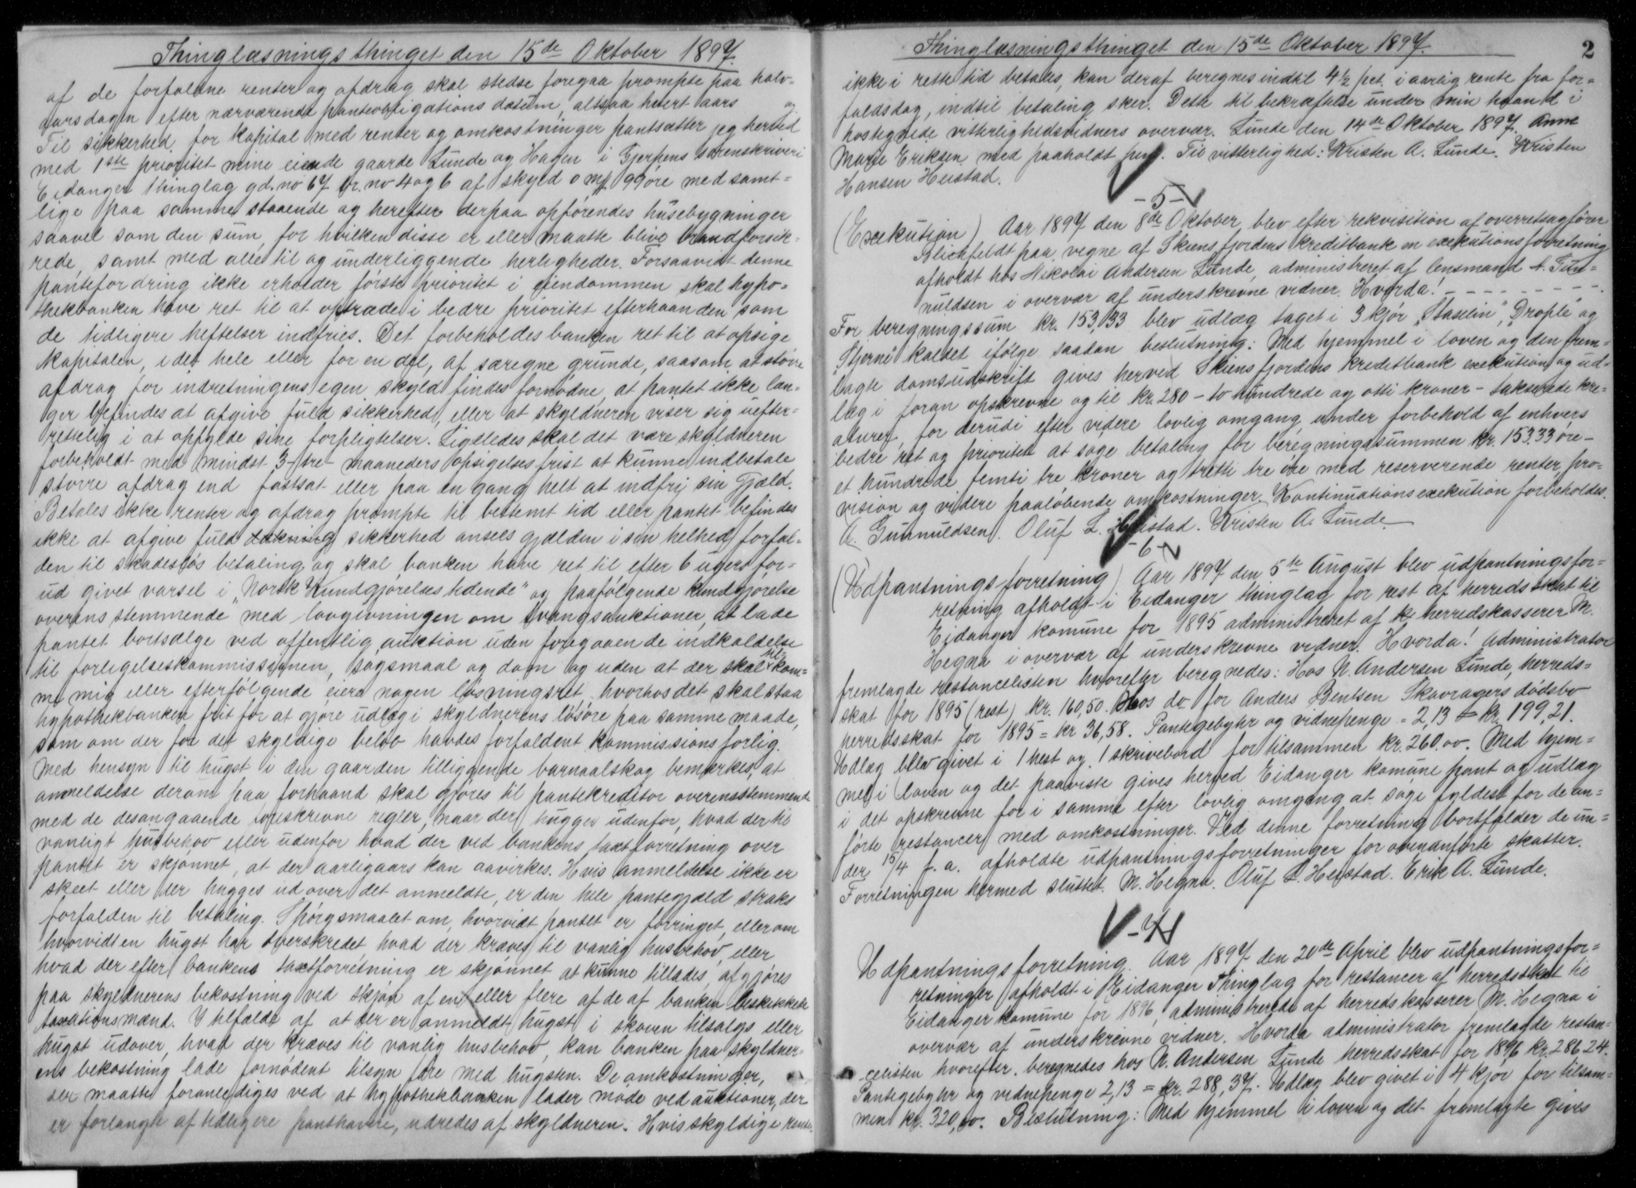 Thinglæsningsthinget den 15de Oktober 1897.
af de forfaldne renter og afdrag skal stedse foregaa prompte paa halv-
aarsdagen efter nærværende panteobligations datum, altsaa hvert aars og
Til sikkerhed for kapital med renter og omkostninger pantsætter jeg herved
med 1ste prioritet mine eiende gaarde Lunde og Hagen i Gjerpens sorenskriveri
Eidanger thinglag gd. no 67 br. no 4 og 6 af skyld 0 mk 99 øre med samt-
lige paa samme staaende og herefter derpaa opførendes husebygninger
saavel som den sum, for hvilken disse er eller maatte blive brandforsik-
rede, samt med alle til og underliggende herligheder. Forsaavidt denne
pantefordring ikke erholder første prioritet i eiendommen skal hypo-
thekbanken have ret til at optræde i bedre prioritet efterhaanden som
de tidligere heftelser indfries. Det forbeholdes banken ret til at opsige
kapitalen, i det hele eller for en del, af særegne grunde, saasom at større
afdrag for indretningens egen skyld findes fornødne, at pantet ikke læn-
ger befindes at afgive fuld sikkerhed, eller at skyldneren viser sig uefter-
rettelig i at opfylde sine forpligtelser. Ligeledes skal det være skyldneren
forbeholdt med mindst 3 - tre - maaneders opsigelsesfrist at kunne indbetale
større afdrag end fastsat eller paa en gang helt at indfri sin gjæld.
Betales ikke renter og afdrag prompte til bestemt tid eller pantet befindes
ikke at afgive fuld dækning sikkerhed ansees gjælden i sin helhed forfal-
den til skadesløs betaling og skal banken have ret til efter 6 ugers for-
ud givet varsel i "Norsk Kundgjørelsestidende" og paafølgende kundgjørelse
overensstemmende med lovgivningen om tvangsauktioner, at lade
pantet bortsælge ved offentlig auktion uden foregaaende indkaldelse
til forligelseskommissionen, søgsmaal og dom og uden at der skal tilkom-
me mig eller efterfølgende eiere nogen løsningsret, hvorhos det skal staa
hypothekbanken frit for at gjøre udlæg i skyldnerens løsøre paa samme maade,
som om der for det skyldige beløb havdes forfaldent kommissionsforlig.
Med hensyn til hugst i den gaarden tilliggende barnaalskog bemærkes, at
anmeldelse derom paa forhaand skal gjøres til pantekreditor overensstemmende
med de desangaaende foreskrevne regler, naar der hugges udenfor, hvad der til
vanligt husbehov eller udenfor hvad der ved bankens taxtforretning over
pantet er skjønnet, at der aarligaars kan aavirkes. Hvis anmeldelse ikke er
skeet eller der hugges ud over det anmeldte, er den hele pantegjæld straks
forfalden til betaling. Spørgsmaalet om, hvorvidt pantet er forringet, eller om
hvorvidt en hugst har overskredet hvad der kræves til vanlig husbehov, eller
hvad der efter bankens taxtforretning er skjønnet at kunne tillades, afgjøres
paa skyldnerens bekostning ved skjøn af en eller flere af de af banken beskikkede
taxationsmænd. I tilfælde af at der er anmeldt hugst i skoven tilsalgs eller
hugst udover, hvad der kræves til vanlig husbehov, kan banken paa skyldner-
ens bekostning lade fornødent tilsyn føre med hugsten. De omkostninger,
der maatte foranlediges ved at hypothekbanken lader møde ved auktioner, der
er forlangte af tidligere panthavere, udredes af skyldneren. Hvis skyldige renter
Thinglæsningsthinget den 15de Oktober 1897.
2
ikke i rette tid betales, kan deraf beregnes indtil 4½ pct. i aarlig rente fra for-
faldsdag, indtil betaling sker. Dette til bekræftelse under min haand i
hostegnede vitterlighedsvidners overvær. Lunde den 14de Oktober 1897. Anne
Marie Eriksen med paaholdt pen. Til vitterlighed: Kristen A. Lunde. Kristen
Hansen Heistad.
- 5 -
(Exekution) Aar 1897 den 8de Oktober, blev efter rekvisition af overretssagfører
Blichfeldt paa vegne af Skiensfjordens kreditbank en exekutionsforretning
afholdt hos Nikolai Andersen Lunde, administreret af lensmand A. Gun-
nuldsen i overvær af underskrevne vidner. Hvorda!
For beregningssum kr. 153,33 blev udlæg taget i 3 kjør "Staselin" "Droplé" og
"Stjerne" kaldet ifølge saadan beslutning: Med hjemmel i loven og den frem-
lagte domsudskrift gives herved Skiensfjordens Kreditbank exekution og ud-
læg i foran opskrevne og til kr. 280 - to hundrede og otti kroner - takserede kre-
aturer, for derudi efter videre lovlig omgang under forbehold af enhvers
bedre ret og prioritet at søge betaling for beregningssummen kr. 153.33 øre -
et hundrede femti tre kroner og tretti tre øre med reserverende renter, pro-
vision og videre paaløbende omkostninger. Kontinuationsexekution forbeholdes.
A. Gunnuldsen. Oluf L. Heistad. Kristen A. Lunde
- 6 -
(Udpantningsforretning) Aar 1897 den 5te August blev udpantningsfor-
retning afholdt i Eidanger thinglag for rest af herredsskat til
Eidanger komune for 1895 administreret af herredskasserer M.
Hegna i overvær af underskrevne vidner. Hvorda! Administrator
fremlagde restancelisten hvorefter beregnedes: Hos N. Andersen Lunde, herreds-
skat for 1895 (rest) kr. 160,50. Hos do for Anders Bentsen Skavragers dødsbo
herredsskat for 1895 = kr 36,58. Pantegebyhr og vidnepenge = 2,13 = kr. 199,21.
Udlæg blev givet i 1 hest og 1 skrivebord for tilsammen kr. 260,00. Med hjem-
mel i loven og det paaviste gives herved Eidanger komune pant og udlæg
i det opskrevne for i samme efter lovlig omgang at søge fyldest for de an-
førte restancer med omkostninger. Ved denne forretning bortfalder de un-
der 15/4 f. a. afholdte udpantningsforretninger for ovenanførte skatter.
Forretningen hermed sluttet. M. Hegna. Oluf L. Heistad. Erik A. Lunde.
- 7 -
Udpantningsforretning. Aar 1897 den 20de April blev udpantningsfor-
retninger afholdt i Eidanger Thinglag for restancer af herredsskat til
Eidanger komune for 1896, administrerede af herredskasserer M. Hegna i
overvær af underskrevne vidner. Hvorda administrator fremlagde restan-
celisten hvorefter beregnedes hos N. Andersen Lunde herredsskat for 1896 kr. 286.24.
Pantegebyhr og vidnepenge 2,13 = kr. 288,37. Udlæg blev givet i 4 kjør for tilsam-
men kr. 320,00. Beslutning: Med hjemmel i loven og det fremlagte gives